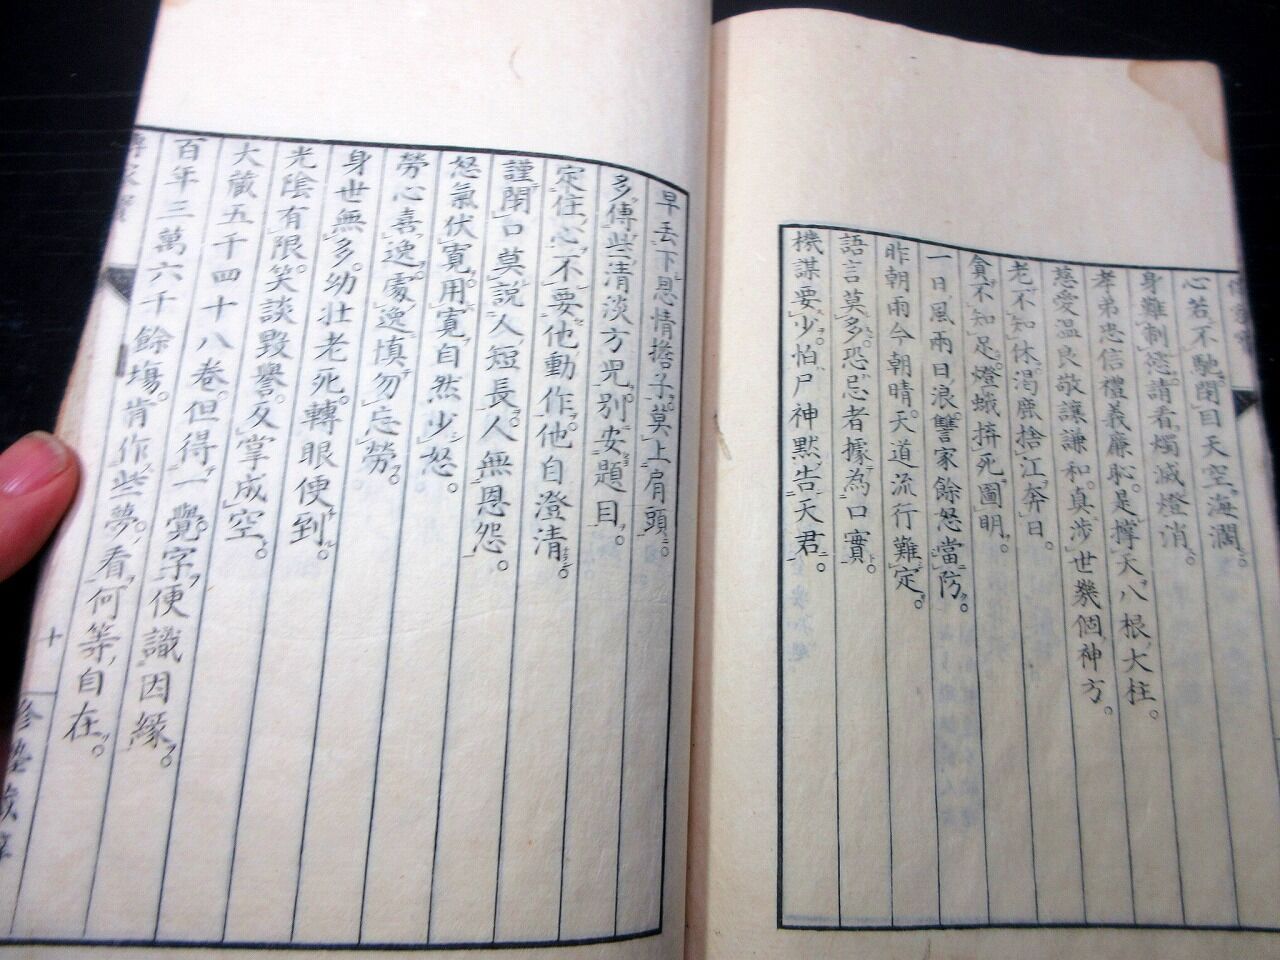 心若不馳。閉目天空海濶。
身難制慾。請看燭滅燈消。
孝弟忠信禮義廉恥。是撑天八根大柱。
慈愛温良敬讓謙和。真涉世幾個神方。
老不知休。渇鹿捨江奔日。
貪不知足。燈蛾擠死圖明。
一日風雨日浪。讐家餘怒當防。
昨朝雨今朝晴。天道流行難定。
語言莫多。恐忌者據為口實。
機謀要少。怕尸神黙告天君。
早丢下恩情擔子。莫上肩頭。
多傳些清淡方兒。別安題目。
定住心不要他動作。他自澄清。
謹閉口莫說人短長。人無恩怨。
怒氣伏寛。用寛自然少怒。
勞心喜逸。處逸慎勿忘勞。
身世無多。幼壮老死。轉眼便到。
光陰有限。笑談毀譽。反掌成空。
大藏五千四十八卷。但得一覺字。便識因緣。
百年三萬六千餘塲。肯作些夢。看何等自在。
傳家寶
十